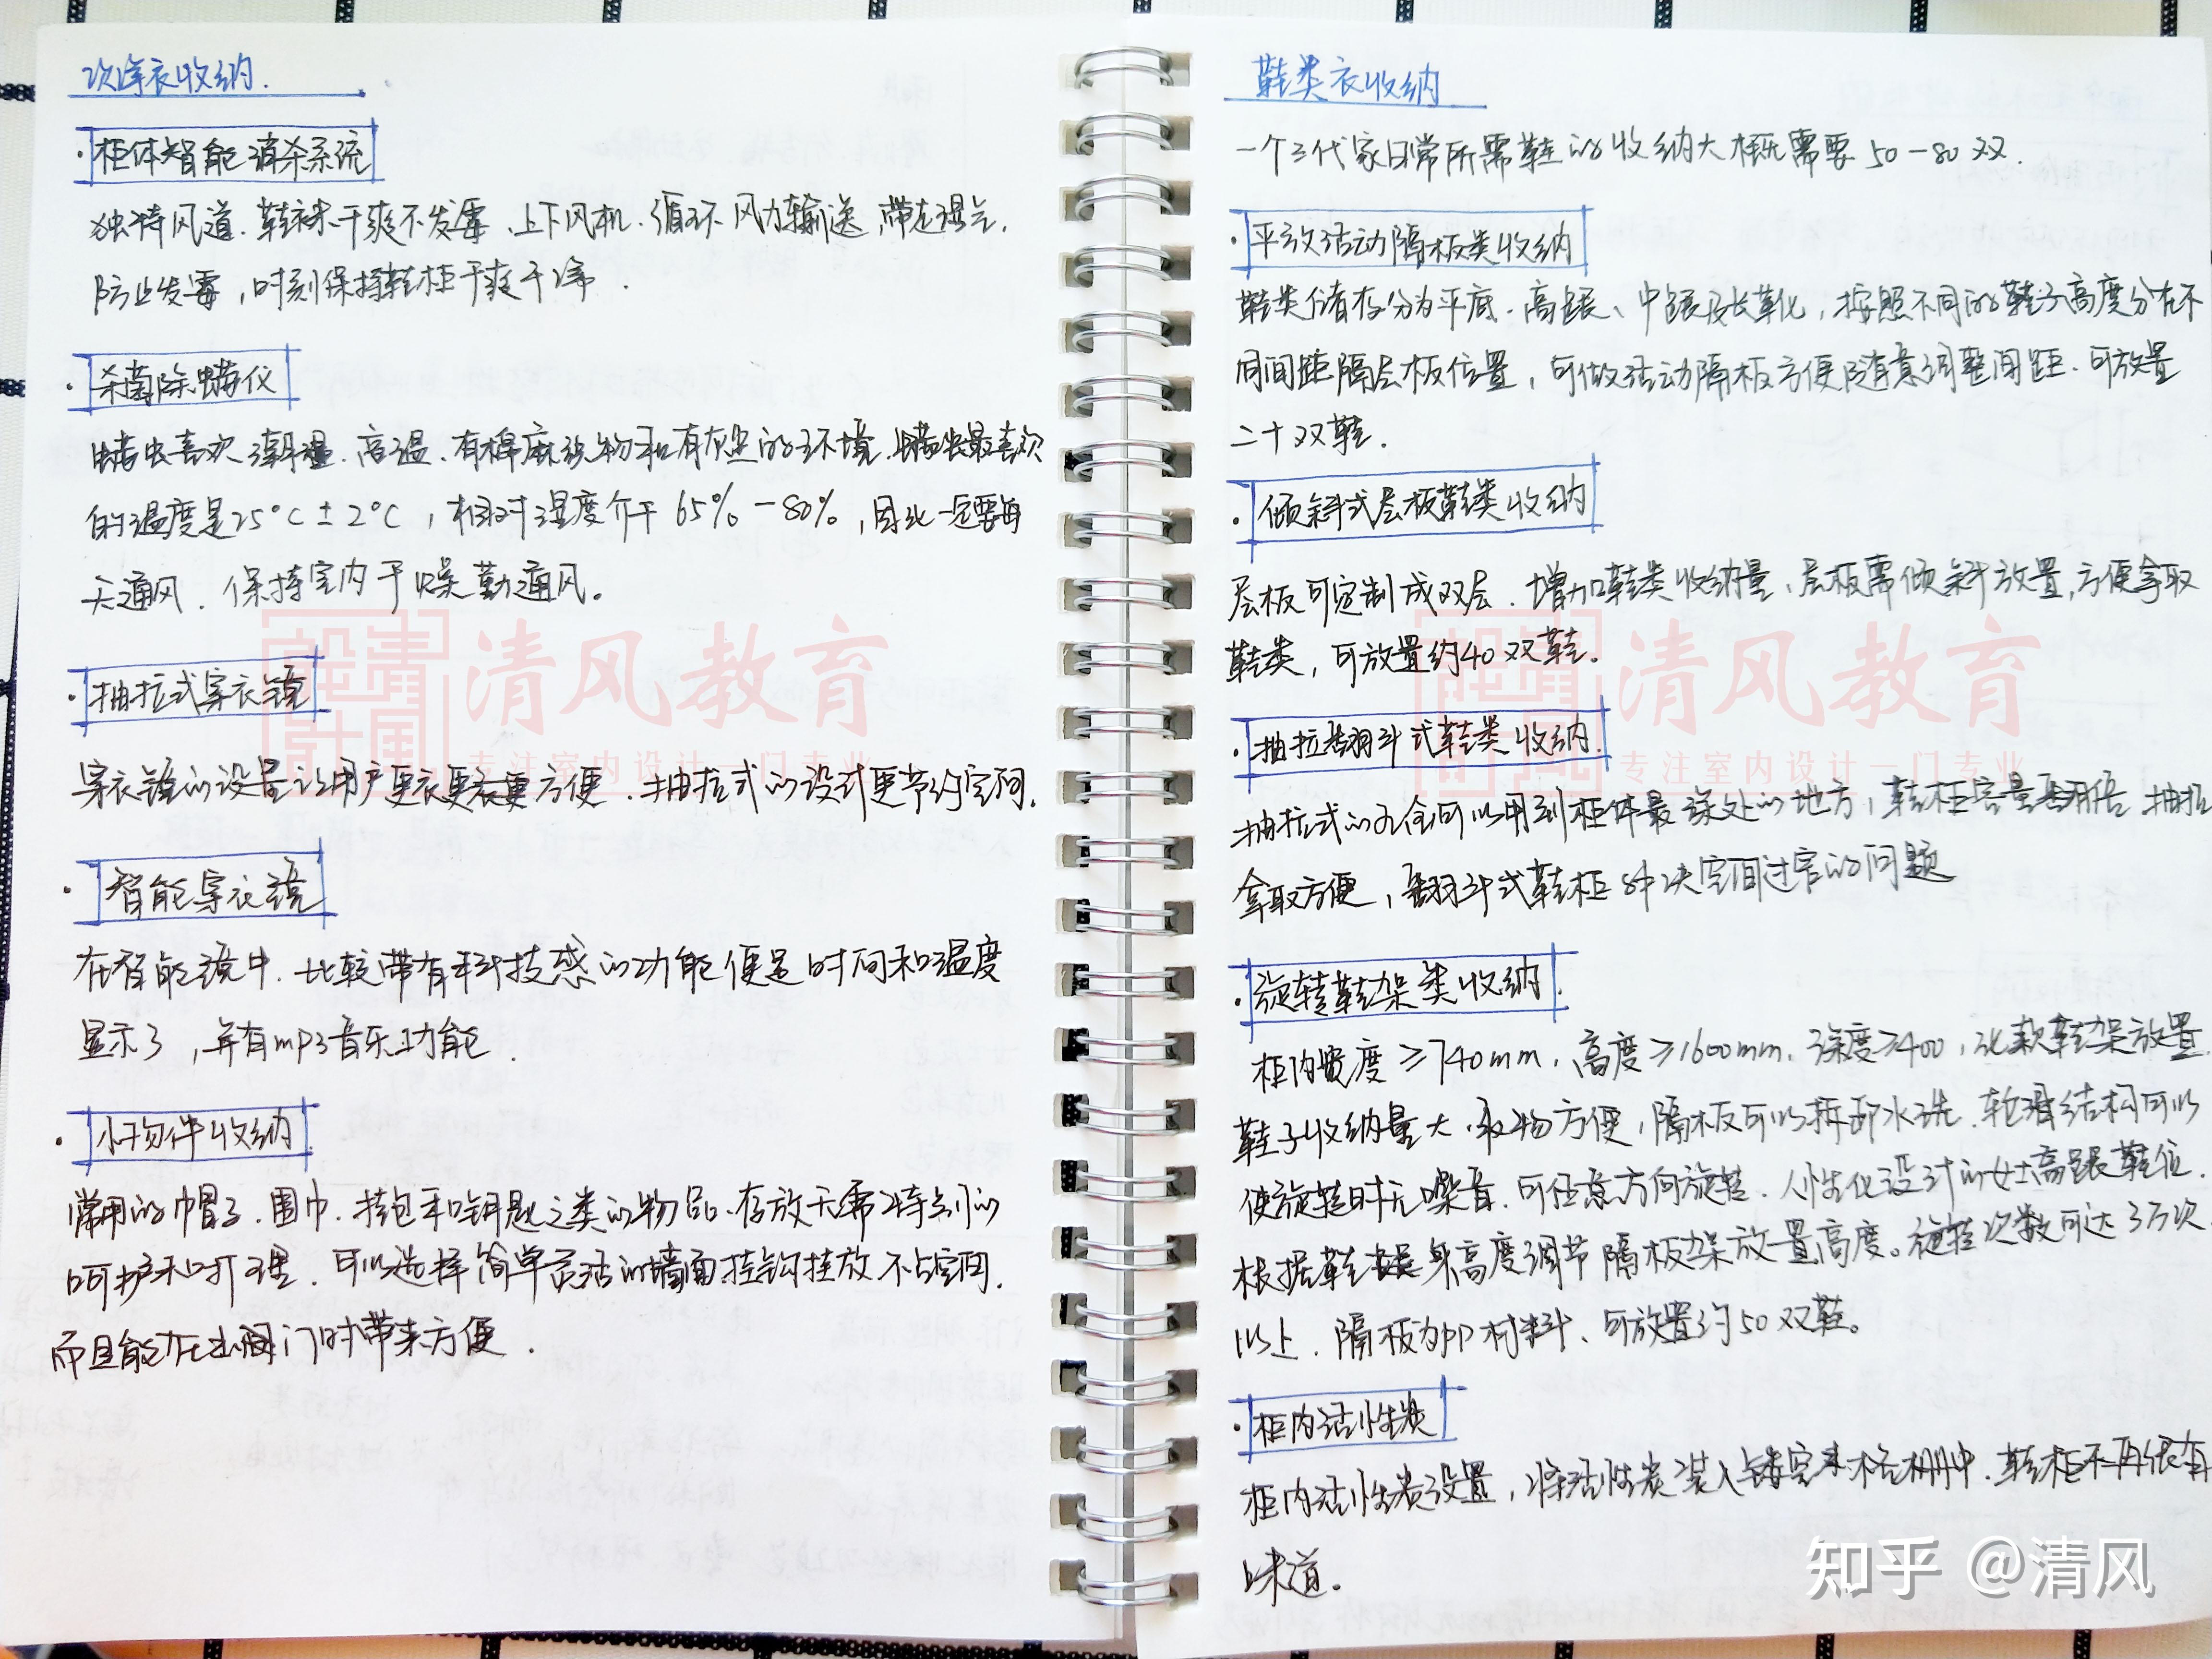 次净衣收纳.
·柜体智能消杀系统
独特风道.鞋袜干爽不发霉、上下风机.循环风力输送,带走湿气.
防止发霉,时刻保持鞋柜干爽干净.
·杀菌除螨仪
螨虫喜欢潮湿、高温、有棉麻织物和有灰尘的环境.螨虫最喜欢
的温度是25°C±2°C,相对湿度介于65%-80%,因此一定要每
天通风.保持室内干燥勤通风。
·抽拉式穿衣镜
穿衣镜的设置让用户更衣更方便.抽拉式的设计更节约空间.
·智能穿衣镜
在智能镜中.比较带有科技感的功能便是时间和温度
显示了,并有mp3音乐功能.
·小物件收纳
常用的帽子.围巾.挂包和钥匙之类的物品、存放无需特别的
呵护和打理.可以选择简单灵活的墙面挂钩挂放不占空间.
而且能在出门时带来方便.
鞋类衣收纳
一个三代家日常所需鞋的收纳大概需要50-80双.
·平放活动隔板类收纳
鞋类储存分为平底.高跟、中跟及长靴化,按照不同的鞋子高度分在不
同间距隔层板位置,可做活动隔板方便随意调整间距.可放置
二十双鞋.
·倾斜式层板鞋类收纳
层板可定制成双层.增加鞋类收纳量、层板需倾斜放置,方便拿取
鞋类,可放置约40双鞋.
·抽拉翻斗式鞋类收纳.
抽拉式的五金可以用到柜体最深处的地方,鞋柜容量翻倍.抽拉
拿取方便,翻斗式鞋柜解决空间过窄的问题
·旋转鞋架类收纳.
柜内宽度≥740mm,高度≥1600mm.深度≥400,此款鞋架放置
鞋子收纳量大.取物方便,隔板可以拆卸水洗.轮滑结构可以
使旋转时无噪音.可任意方向旋转.人性化设计的女士高跟鞋位.
根据鞋身高度调节隔板架放置高度。旋转次数可达3万次
以上.隔板为PP材料、可放置约50双鞋。
·柜内活性炭
柜内活性炭设置,将活性炭装入镂空木格栅中.鞋柜不再很有
味道.
清风教育
专注室内设计一门专业
清风教育
专注室内设计一门专业
知乎 @清风